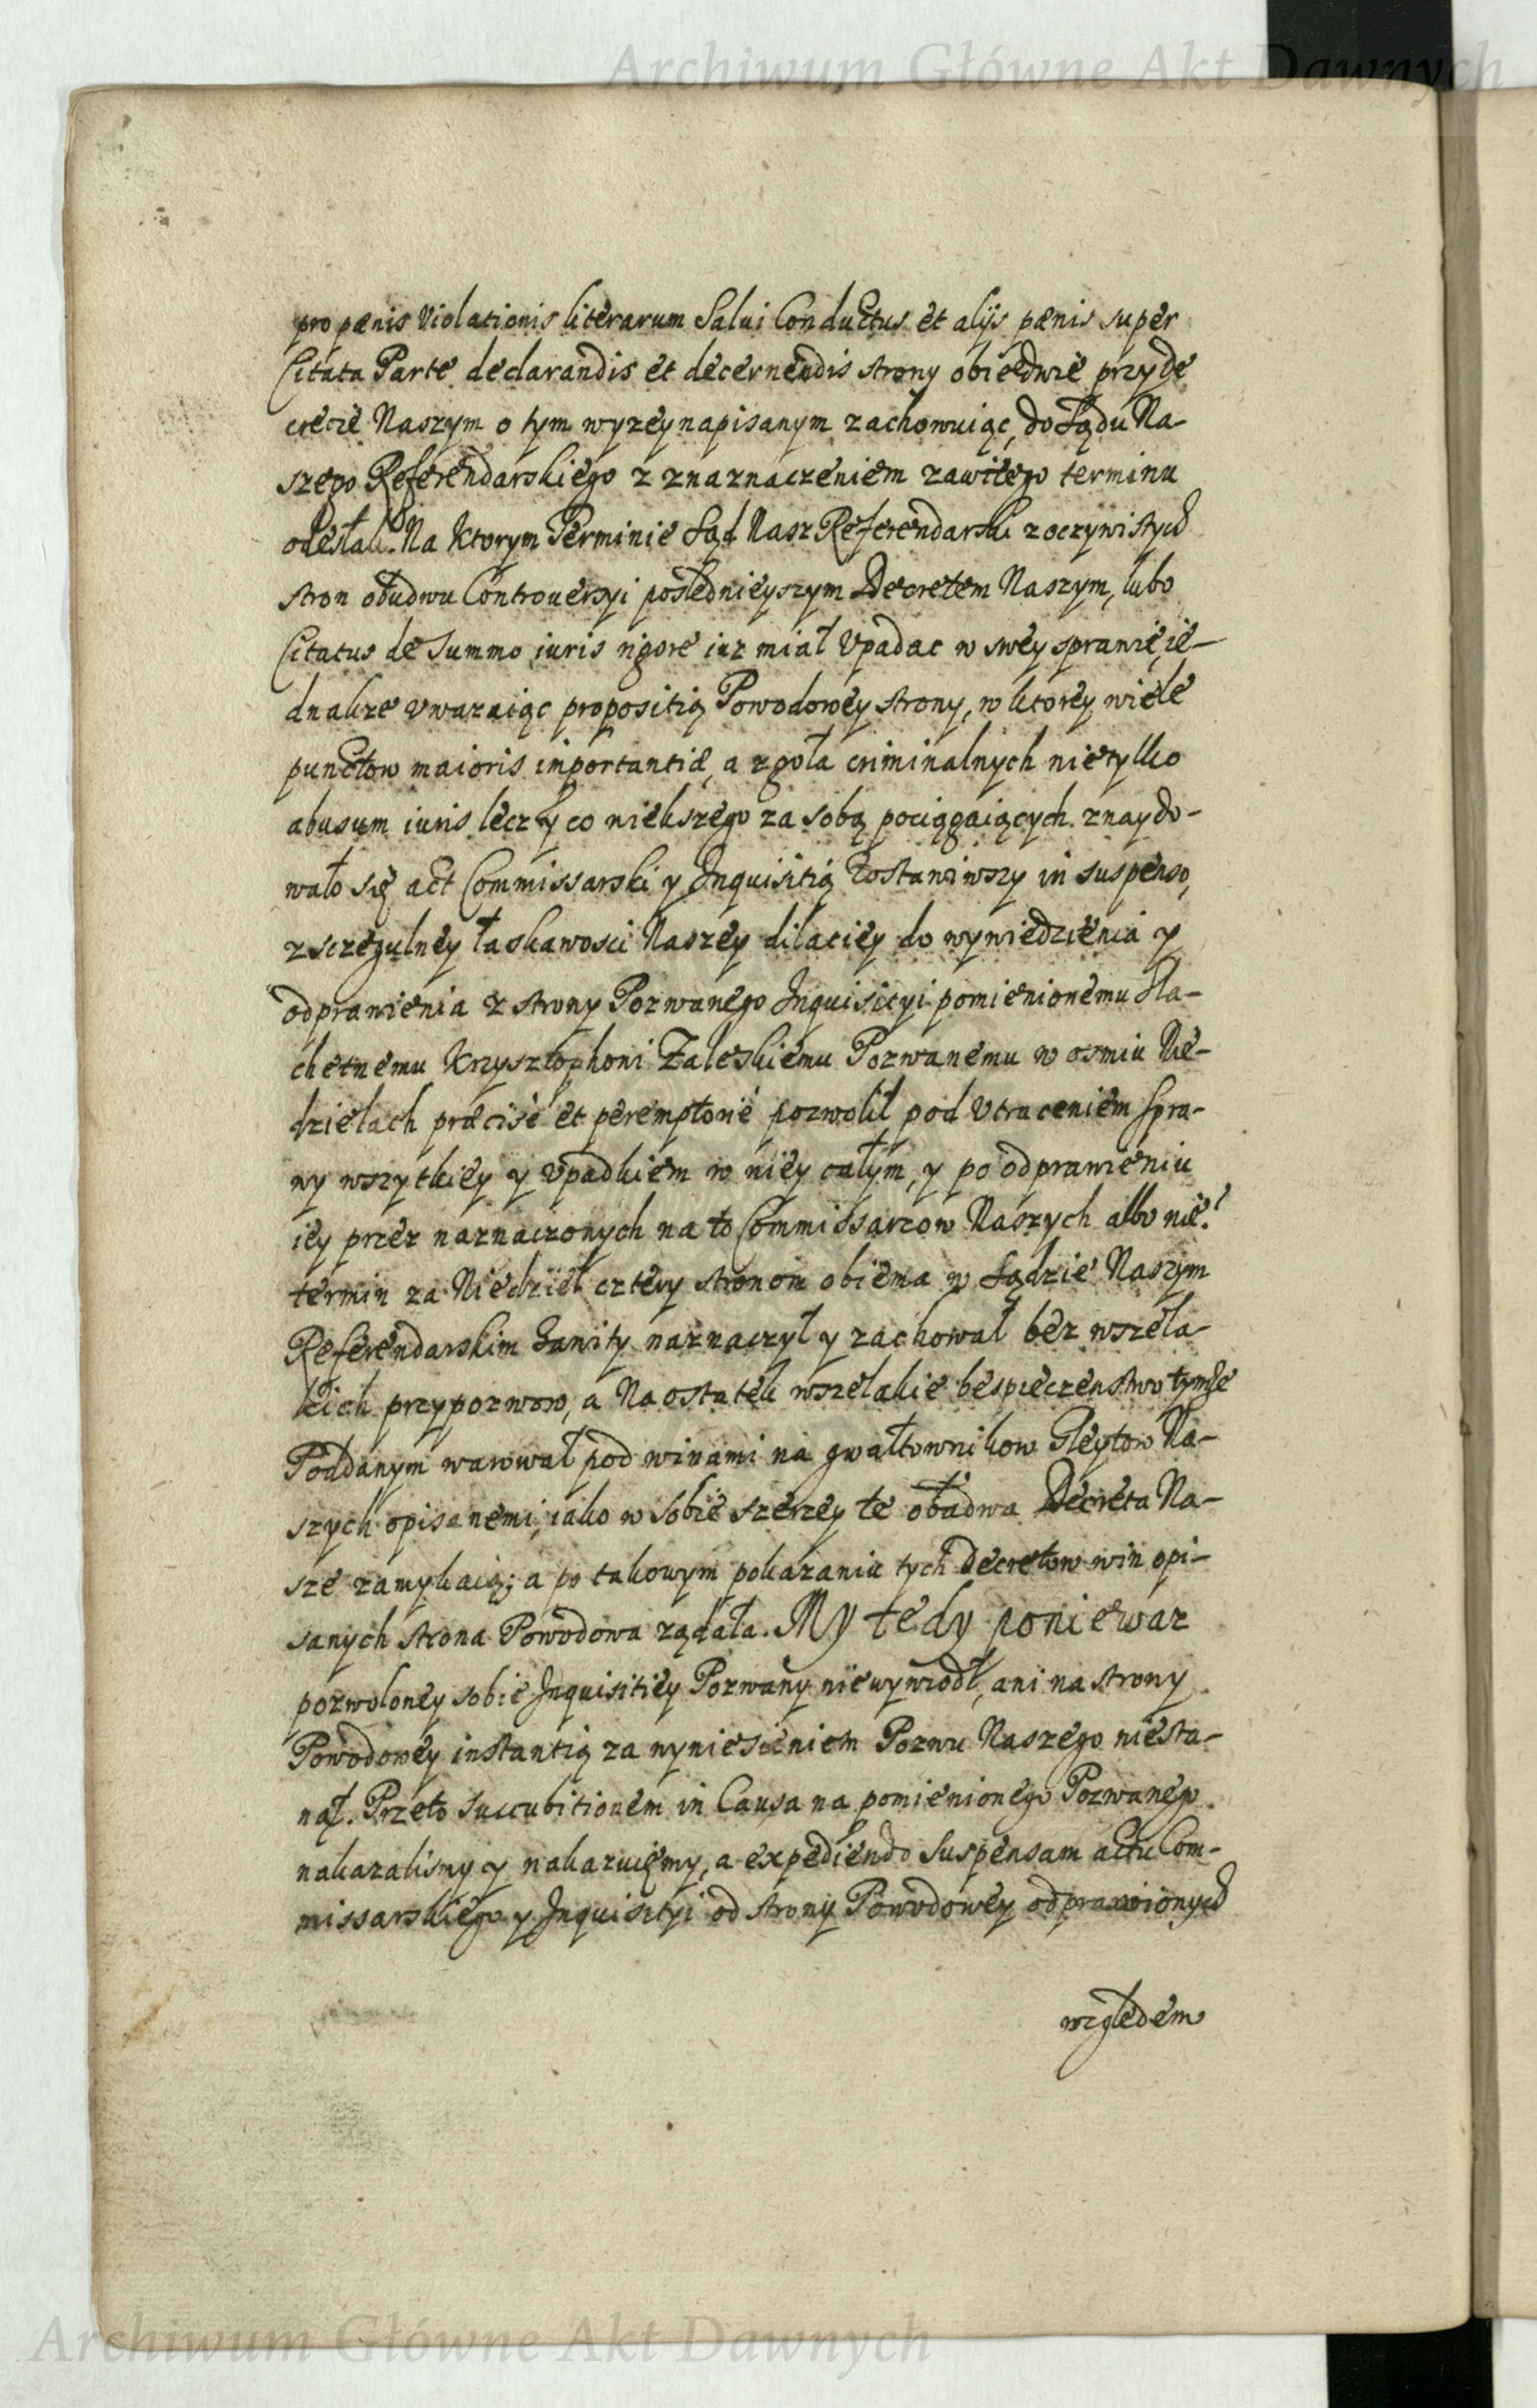 Archiwum Główne Akt Dawnych
pro pænis violationis literarum Salui Conductus et alijs pænis super
Citata Parte declarandis et decernendis strony obiedwie przy de
crecie Naszym o tym wyzey napisanym zachowuiąc, do Sądu Na-
szego Referendarskiego z znaznaczeniem zawitego terminu
odesłali. Na ktorym Terminie Sąd Nasz Referendarski z oczywistych
stron obudwu Controuersyi poslednieyszym Decretem Naszym, lubo
Citatus de summo iuris rigore iuz miał vpadac w swey sprawie, ie-
dnakze vwazaiąc propositią Powodowey strony, w ktorey wiele
punctow maioris inportantiæ, a zgoła criminalnych nietylko
abusum iuris lecz y co wiekszego za sobą pociągaiących znaydo-
wało się act Commissarski y Inquisitią zostawiwszy in suspenso,
z sczegulney łaskawosci Naszey dilaciey do wywiedzienia y
odprawienia z strony Pozwanego Inquisityi pomienionemu Sla-
chetnemu Krzysztophowi Zaleskiemu Pozwanemu w osmiu Nie-
dzielach præcisè et peremptoriè pozwolił pod vtraceniem spra-
wy wszytkiey y vpadkiem w niey całym, y po odprawieniu
iey przez naznaczonych na to Commissarzow Naszych albo nie.
termin za Niedziel cztery stronom obiema w Sądzie Naszym
Referendarskim zawity naznaczył y zachował bez wszela-
kich przypozwow, a Na ostatek wszelakie bespieczenstwo tymze
Poddanym warował pod winami na gwałtownikow Gleytow Na-
szych opisanemi, iako w sobie szerzey te obadwa Decreta Na-
sze zamykaią; a po takowym pokazaniu tych decretow win opi-
sanych strona Powodowa ządała. My tedy poniewaz
pozwoloney sobie Inquisitiey Pozwany niewywiodł, ani na strony
Powodowey instantią za wyniesieniem Pozwu Naszego niesta-
nął. Przeto succubitionem in Causa na pomienionego Pozwanego
nakazalismy y nakazuięmy, a expediendo suspensam actu Com-
missarskiego y Inquisityi od strony Powodowey odprawionych
względem
Archiwum Główne Akt Dawnych